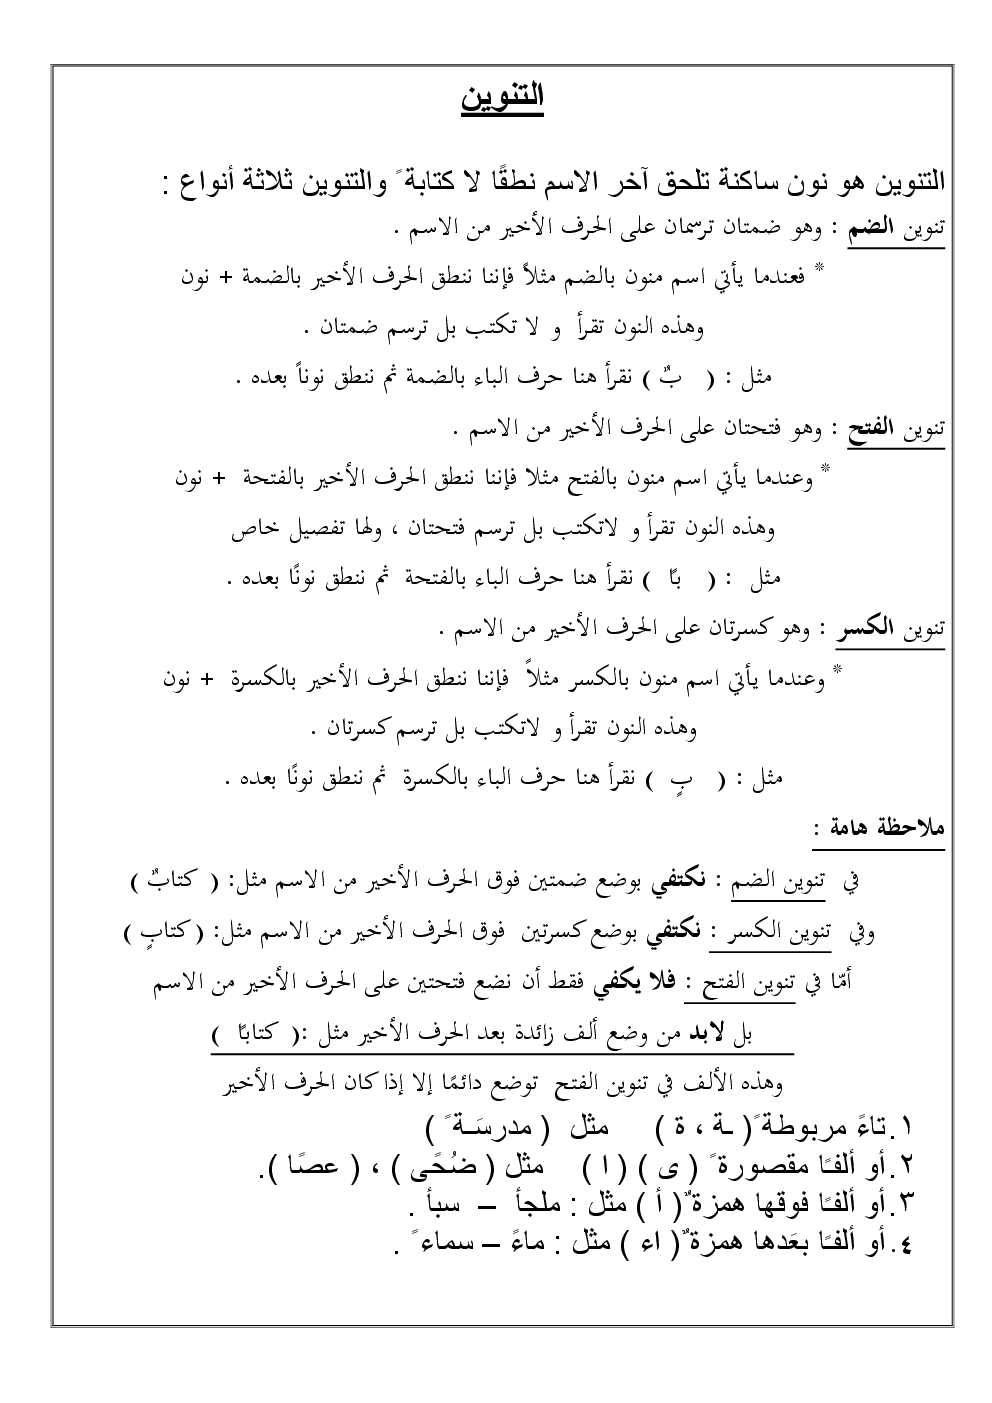 التنوين
التنوين هو نون ساكنة تلحق آخر الاسم نطقًا لا كتابة ً والتنوين ثلاثة أنواع :
تنوين الضم : وهو ضمتان ترسمان على الحرف الأخير من الاسم .
* فعندما يأتي اسم منون بالضم مثلاً فإننا ننطق الحرف الأخير بالضمة + نون
وهذه النون تقرأ و لا تكتب بل ترسم ضمتان .
مثل : ( بٌ ) نقرأ هنا حرف الباء بالضمة ثم ننطق نوناً بعده .
تنوين الفتح : وهو فتحتان على الحرف الأخير من الاسم .
* وعندما يأتي اسم منون بالفتح مثلا فإننا ننطق الحرف الأخير بالفتحة + نون
وهذه النون تقرأ و لاتكتب بل ترسم فتحتان ، ولها تفصيل خاص
مثل : ( بًا ) نقرأ هنا حرف الباء بالفتحة ثم ننطق نونًا بعده .
تنوين الكسر : وهو كسرتان على الحرف الأخير من الاسم .
* وعندما يأتي اسم منون بالكسر مثلاً فإننا ننطق الحرف الأخير بالكسرة + نون
وهذه النون تقرأ و لاتكتب بل ترسم كسرتان .
مثل : ( بٍ ) نقرأ هنا حرف الباء بالكسرة ثم ننطق نونًا بعده .
ملاحظة هامة :
في تنوين الضم : نكتفي بوضع ضمتين فوق الحرف الأخير من الاسم مثل: ( كتابٌ )
وفي تنوين الكسر : نكتفي بوضع كسرتين فوق الحرف الأخير من الاسم مثل: ( كتابٍ )
أمّا في تنوين الفتح : فلا يكفي فقط أن نضع فتحتين على الحرف الأخير من الاسم
بل لابد من وضع ألف زائدة بعد الحرف الأخير مثل :( كتابًا )
وهذه الألف في تنوين الفتح توضع دائمًا إلا إذا كان الحرف الأخير
١.تاءً مربوطة ً( ـة ، ة ) مثل ( مدرسَـة ً )
٢.أو ألفـًا مقصورة ً ( ى ) ( ا ) مثل ( ضُحًى ) ، ( عصًا ).
٣.أو ألفـًا فوقها همزة ٌ( أ ) مثل : ملجأ – سبأ .
٤.أو ألفـًا بعَدها همزة ٌ( اء ) مثل : ماءً – سماء ً .